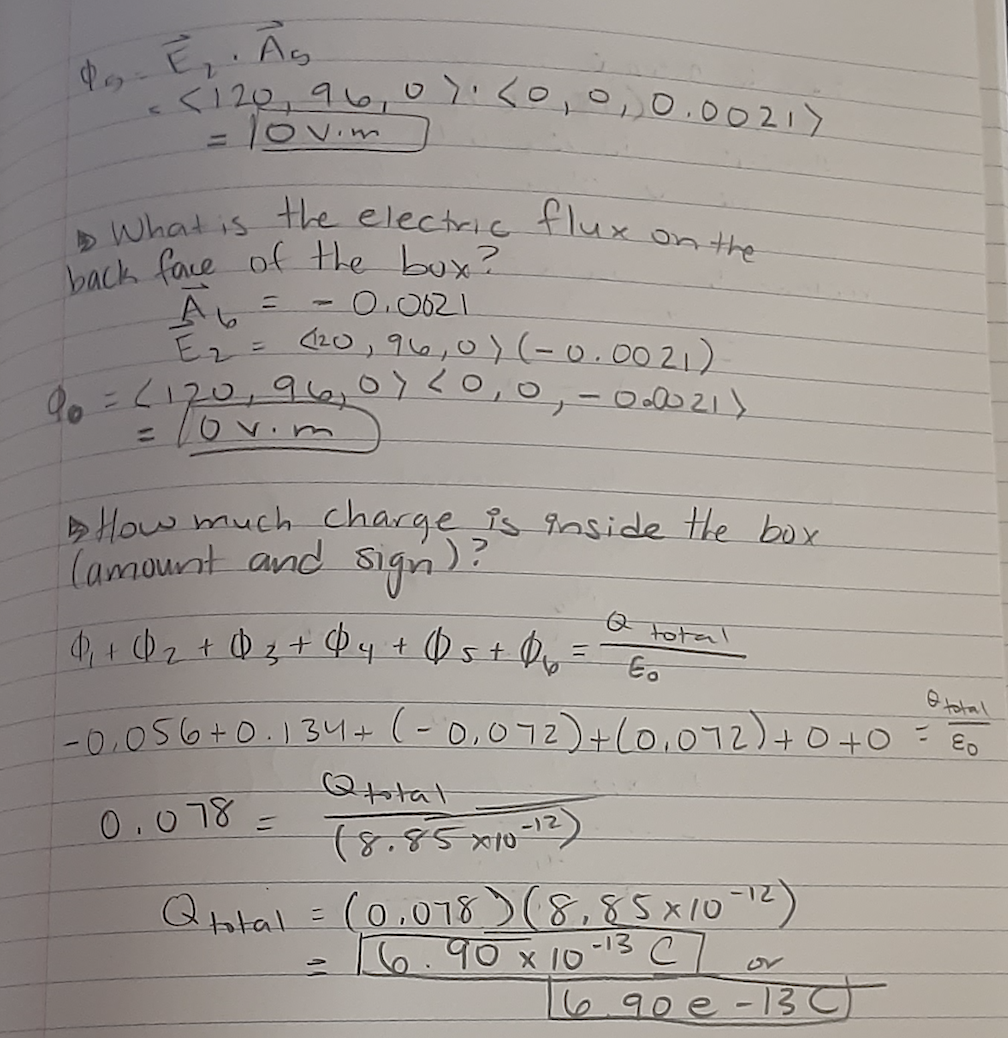 ϕ₅ = E⃗₂ · A⃗₅
= <120, 96, 0> · <0, 0, 0.0021>
= 0 V·m
What is the electric flux on the
back face of the box?
A⃗₆ = - 0.0021
E⃗₂ = <120, 96, 0> (-0.0021)
ϕ₆ = <120, 96, 0> <0, 0, -0.0021>
= 0 V·m
How much charge is inside the box
(amount and sign)?
ϕ₁ + ϕ₂ + ϕ₃ + ϕ₄ + ϕ₅ + ϕ₆ = Q total / ε₀
-0.056 + 0.134 + (-0.072) + (0.072) + 0 + 0 = Q total / ε₀
0.078 = Q total / (8.85 x10⁻¹²)
Q total = (0.078) (8.85 x 10⁻¹²)
= 6.90 x 10⁻¹³ C or
6.90 e -13 C